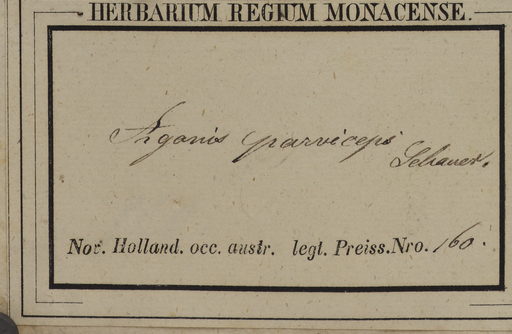 HERBARIUM REGIUM MONACENSE.
Agonis parviceps
Schauer.
Nov. Holland. occ. austr. legt. Preiss. Nro. 160.